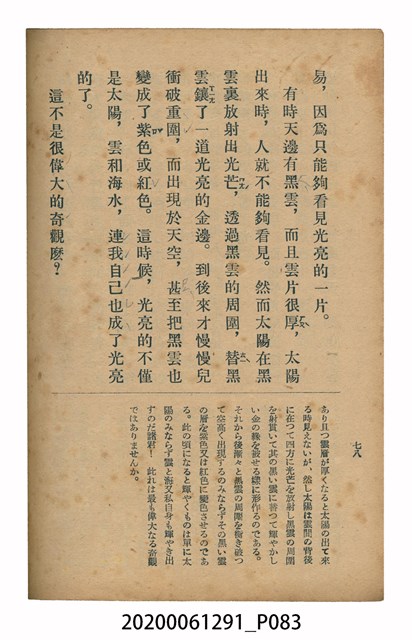 易，因爲只能夠看見光亮的一片。
有時天邊有黑雲，而且雲片很厚，太陽
出來時，人就不能夠看見。然而太陽在黑
雲裏放射出光芒，透過黑雲的周圍，替黑
雲鑲了一道光亮的金邊。到後來才慢慢兒
衝破重圍，而出現於天空，甚至把黑雲也
變成了紫色或紅色。這時候，光亮的不僅
是太陽，雲和海水，連我自己也成了光亮
的了。
這不是很偉大的奇觀麼？
七八
あり且つ雲層が厚くなると太陽の出て來
る時見えないが、然し太陽は雲間の背後
に在つて四方に光芒を放射し黒雲の周圍
を射貫いて其の黒い雲に替つて輝やかし
い金の緣を被せる樣に形作るのである。
それから後漸々と黒雲の周圍を衝き破つ
て空高く出現するのみならずその黒い雲
の層を紫色又は紅色に變色させるのであ
る。此の頃になると輝やくものは單に太
陽のみならず雲と海又私自身も輝やき出
すのだ諸君！此れは最も偉大なる奇觀
ではありませんか。
20200061291_P083